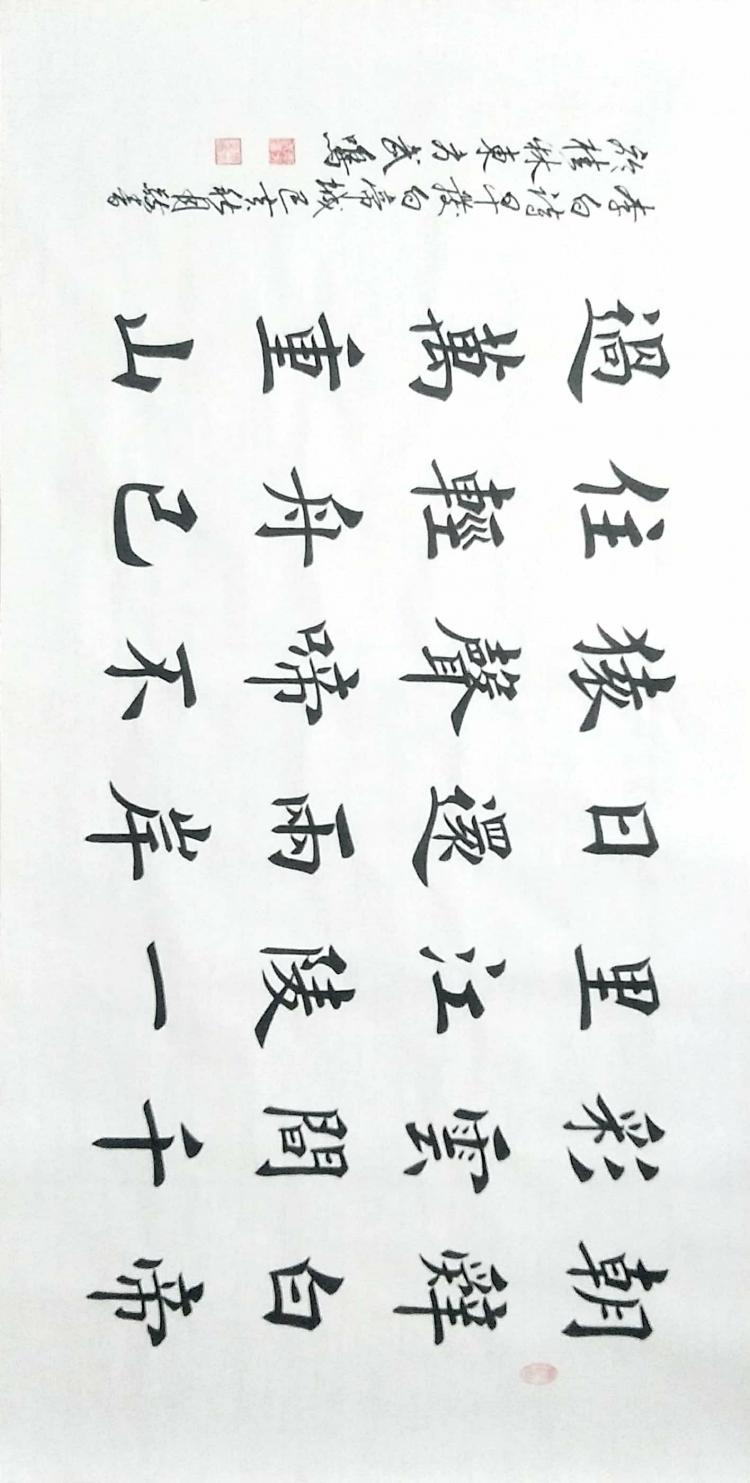 朝辭白帝
彩雲間千
里江陵一
日還兩岸
猿聲啼不
住輕舟已
過萬重山
李白詩早發白帝城 書
於桂林東方